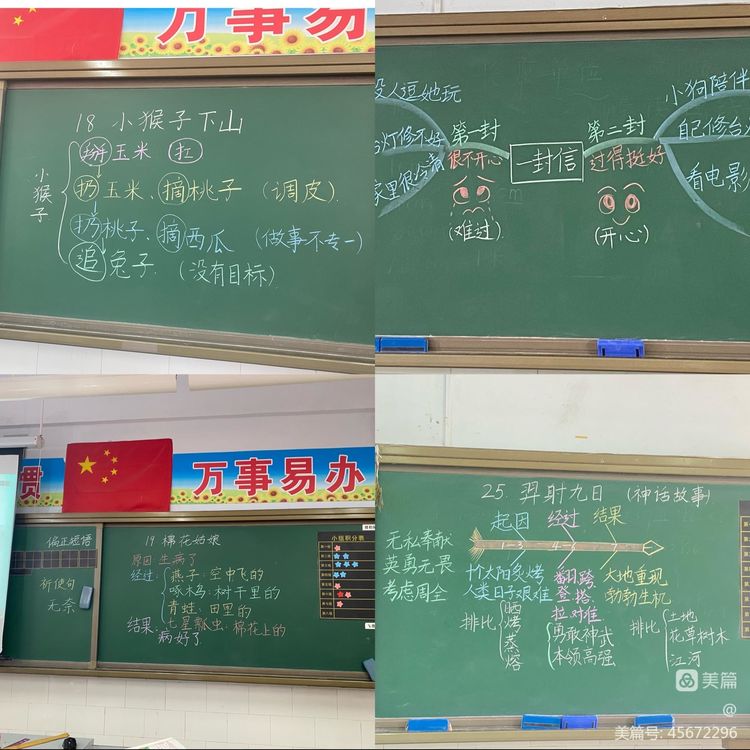 万事易
18 小猴子下山
小猴子
掰玉米 扛
扔玉米、摘桃子 (调皮).
扔桃子、摘西瓜 (做事不专一)
追兔子. (没有目标)
没人逗她玩
台灯修不好
家里很冷清
第一封
很不开心
(难过)
一封信
第二封
过得挺好
(开心)
小狗陪伴
自己修台
看电影
贯
万事易办
偏正短语
祈使句
无奈
19 棉花姑娘
原因 生病了
经过: 燕子: 空中飞的
啄木鸟: 树干里的
青蛙: 田里的
七星瓢虫: 棉花上的
结果: 病好了
小组积分表
25. 羿射九日 (神话故事)
无私奉献
英勇无畏
考虑周全
起因 经过 结果
1-3
十个太阳炙烤
人类日子艰难
翻 跨
登 搭
拉 对准
大地重现
勃勃生机
排比 晒 烤 蒸 熔
勇敢神武
本领高强
排比 土地
花草树木
江河
美篇
@
美篇号: 45672296